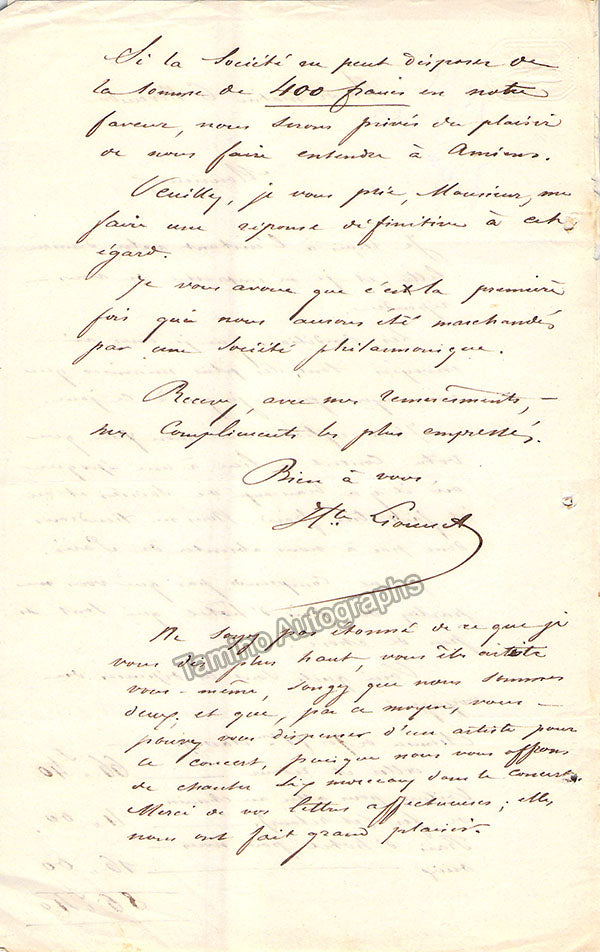 Si la Société ne peut disposer de
la somme de 400 francs en notre
faveur, nous serons privés du plaisir
de nous faire entendre à Amiens.
Veuillez, je vous prie, Monsieur, me
faire une réponse définitive à cet
égard.
Je vous avoue que c'est la première
fois que nous aurons été marchandés
par une Société philarmonique.
Recevez, avec mes remerciements,
mes compliments les plus empressés.
Bien à vous,
Hte Lionnet
Ne soyez pas étonné de ce que je
vous dis plus haut, vous êtes artiste
vous-même, songez que nous sommes
deux, et que, par ce moyen, vous
pouvez vous dispenser d'un artiste pour
ce concert, puisque nous vous offrons
de chanter six morceaux dans le concert.
Merci de vos lettres affectueuses; elles
nous ont fait grand plaisir.
Tamino Autographs